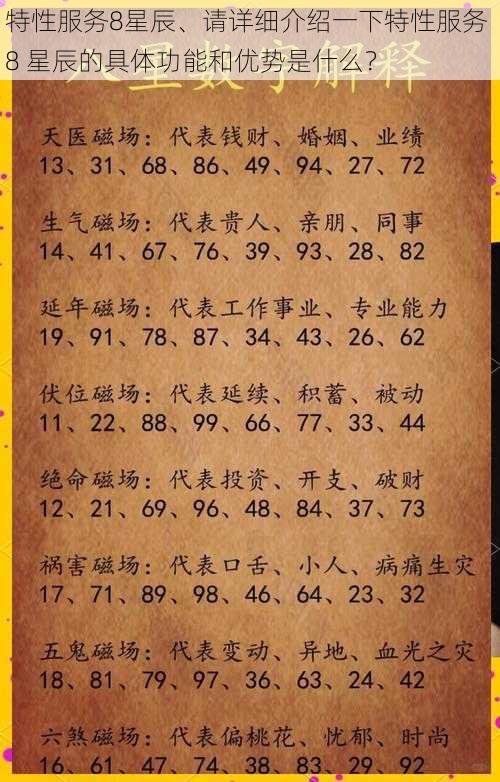 特性服务8星辰、请详细介绍一下特性服务
8 星辰的具体功能和优势是什么？
八星数字解释
天医磁场：代表钱财、婚姻、业绩
13、31、68、86、49、94、27、72
生气磁场：代表贵人、亲朋、同事
14、41、67、76、39、93、28、82
延年磁场：代表工作事业、专业能力
19、91、78、87、34、43、26、62
伏位磁场：代表延续、积蓄、被动
11、22、88、99、66、77、33、44
绝命磁场：代表投资、开支、破财
12、21、69、96、48、84、37、73
祸害磁场：代表口舌、小人、病痛生灾
17、71、89、98、46、64、23、32
五鬼磁场：代表变动、异地、血光之灾
18、81、79、97、36、63、24、42
六煞磁场：代表偏桃花、忧郁、时尚
16、61、47、74、38、83、29、92